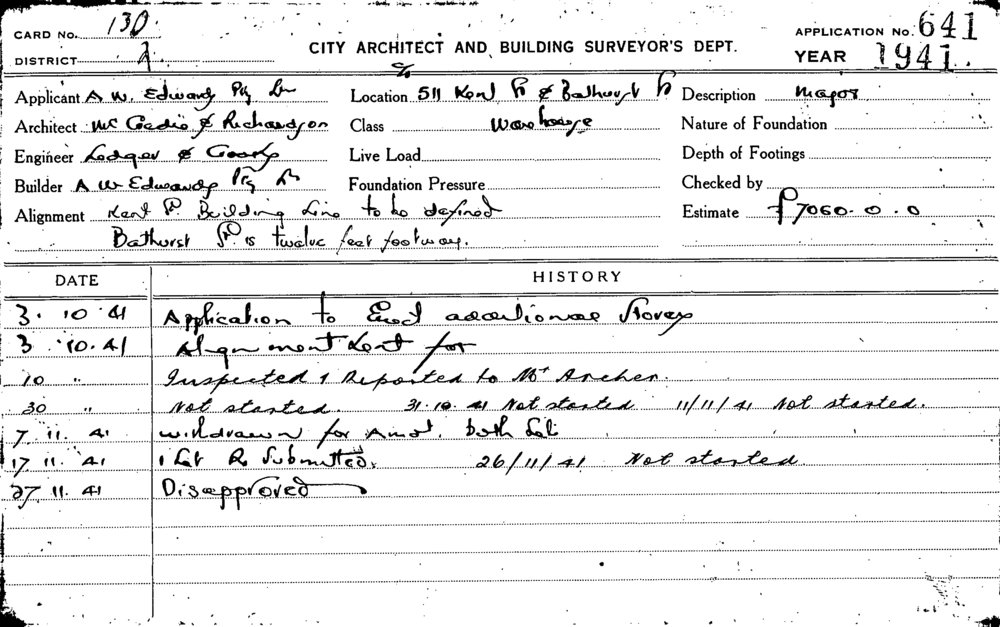 CARD No. 130.
APPLICATION No. 641
DISTRICT 2.
CITY ARCHITECT AND BUILDING SURVEYOR'S DEPT.
YEAR 1941.
Applicant A W. Edwards Pty Ltd
Location c/o 511 Kent St & Bathurst St
Description Major
Architect McCredie & Richardson
Class Warehouse
Nature of Foundation
Engineer Ledger &
Live Load
Depth of Footings
Builder A W Edwards Pty Ltd
Foundation Pressure
Checked by
Alignment Kent St. Building Line to be defined
Estimate £7060.0.0
Bathurst St. is twelve feet footway.
DATE HISTORY
3. 10. 41 Application to Erect additional Storey
3. 10. 41 Alignment sent for
10 " Inspected & Reported to Mr Archer.
30 " Not started. 31.10.41 Not started 11/11/41 Not started.
7. 11. 41 withdrawn for Amdt. both
17. 11. 41 1 Set Re Submitted. 26/11/41 Not started.
27. 11. 41 Disapproved